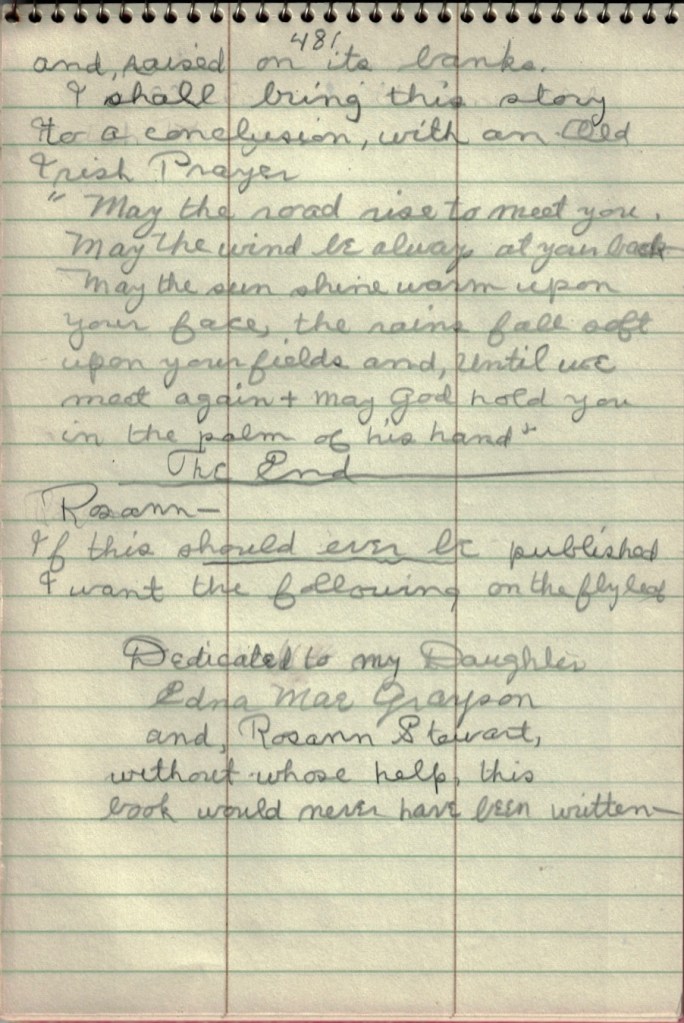 481
and, raised on its banks.
I shall bring this story
to a conclusion, with an Old
Irish Prayer
" May the road rise to meet you.
May the wind be always at your back
May the sun shine warm upon
your face, the rains fall soft
upon your fields and, until we
meet again + may God hold you
in the palm of his hand"
The End
Rosann—
If this should ever be published
I want the following on the flyleaf
Dedicated to my Daughter
Edna Mae Grayson
and, Rosann Stewart,
without whose help, this
book would never have been written—